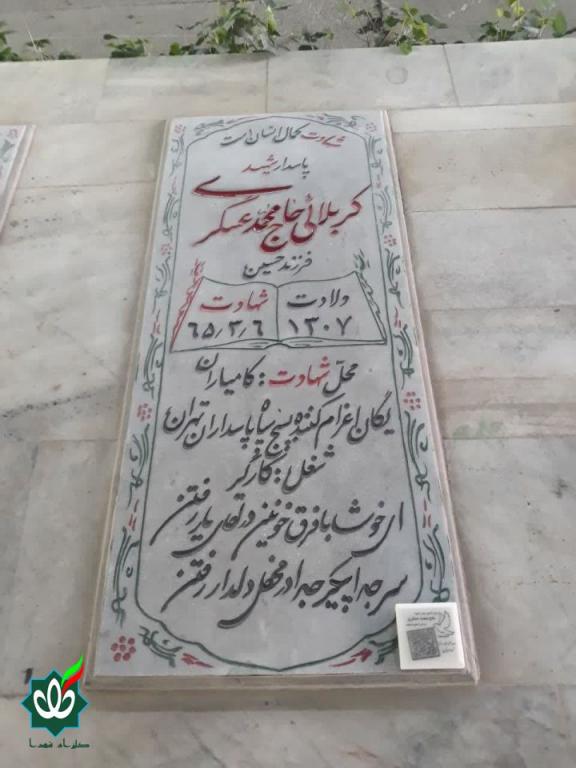 شهادت کمال انسان است
پاسدار شهید
کربلائی حاج محمد عسگری
فرزند حسین
ولادت
۱۳۰۷
شهادت
۶۵/۳/۶
محل شهادت : کامیاران
یگان اعزام کننده بسیج سپاه پاسداران تهران
شغل : کارگر
ای خوشا با فرق خونین در لقای یار رفتن
سر جدا پیکر جدا در محفل دلدار رفتن
گلزار شهدا